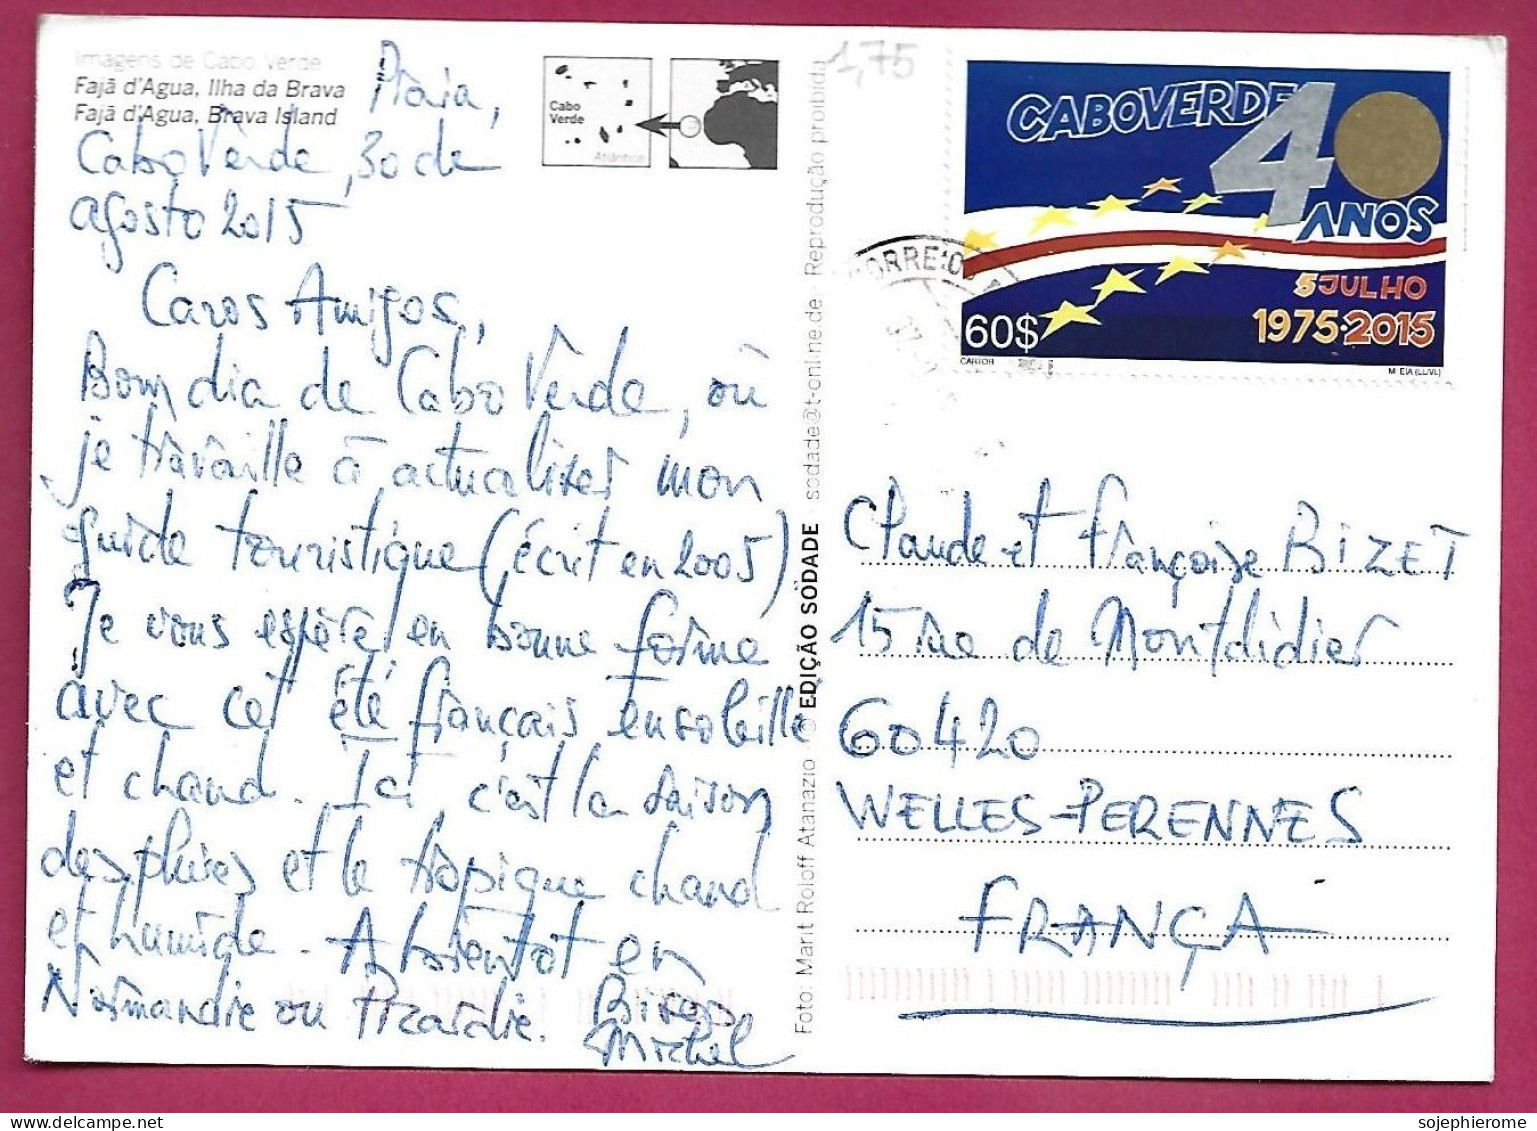 Imagens de Cabo Verde
Fajã d'Agua, Ilha da Brava
Fajã d'Agua, Brava Island
Praia,
Cabo Verde, 30 de
agosto 2015
Caros Amigos,
Bom dia de Cabo Verde, où
je travaille à actualiser mon
guide touristique (écrit en 2005)
Je vous espère en bonne forme
avec cet été français ensoleillé
et chaud. Ici, c'est la saison
des pluies et le tropique chaud
et humide. A bientôt en
Normandie ou Picardie. Bises
Michel
Cabo
Verde
Atlântico
Foto: Marit Roloff Atanazio © EDIÇÃO SODADE sodade@t-online.de - Reprodução proibida
1,75
CABOVERDE
40
ANOS
5 JULHO
1975·2015
60$
CARTOR
CORREIOS
Claude et Françoise BIZET
15 rue de Montdidier
60420
WELLES-PERENNES
FRANÇA
sojephierome